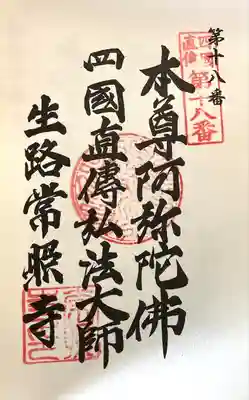 第十八番
四国
直傳
第十八番
本尊阿弥陀佛
四國直傳弘法大師
生路常照寺